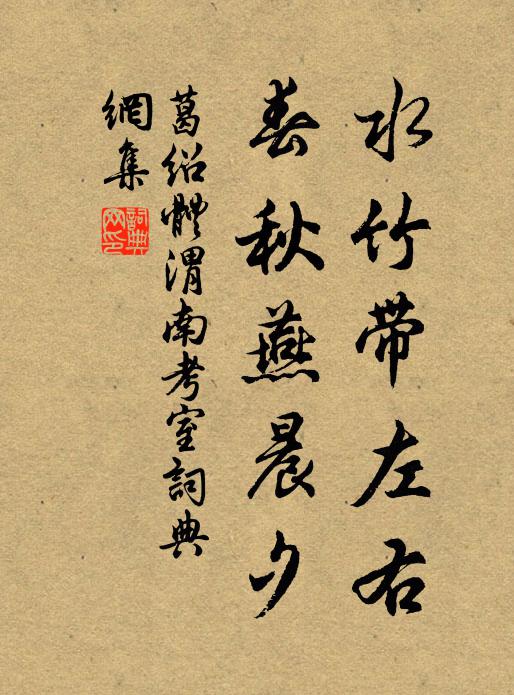 水竹带左右
春秋燕晨夕
葛绍體渭南考室詞典
網集
詞典
网印